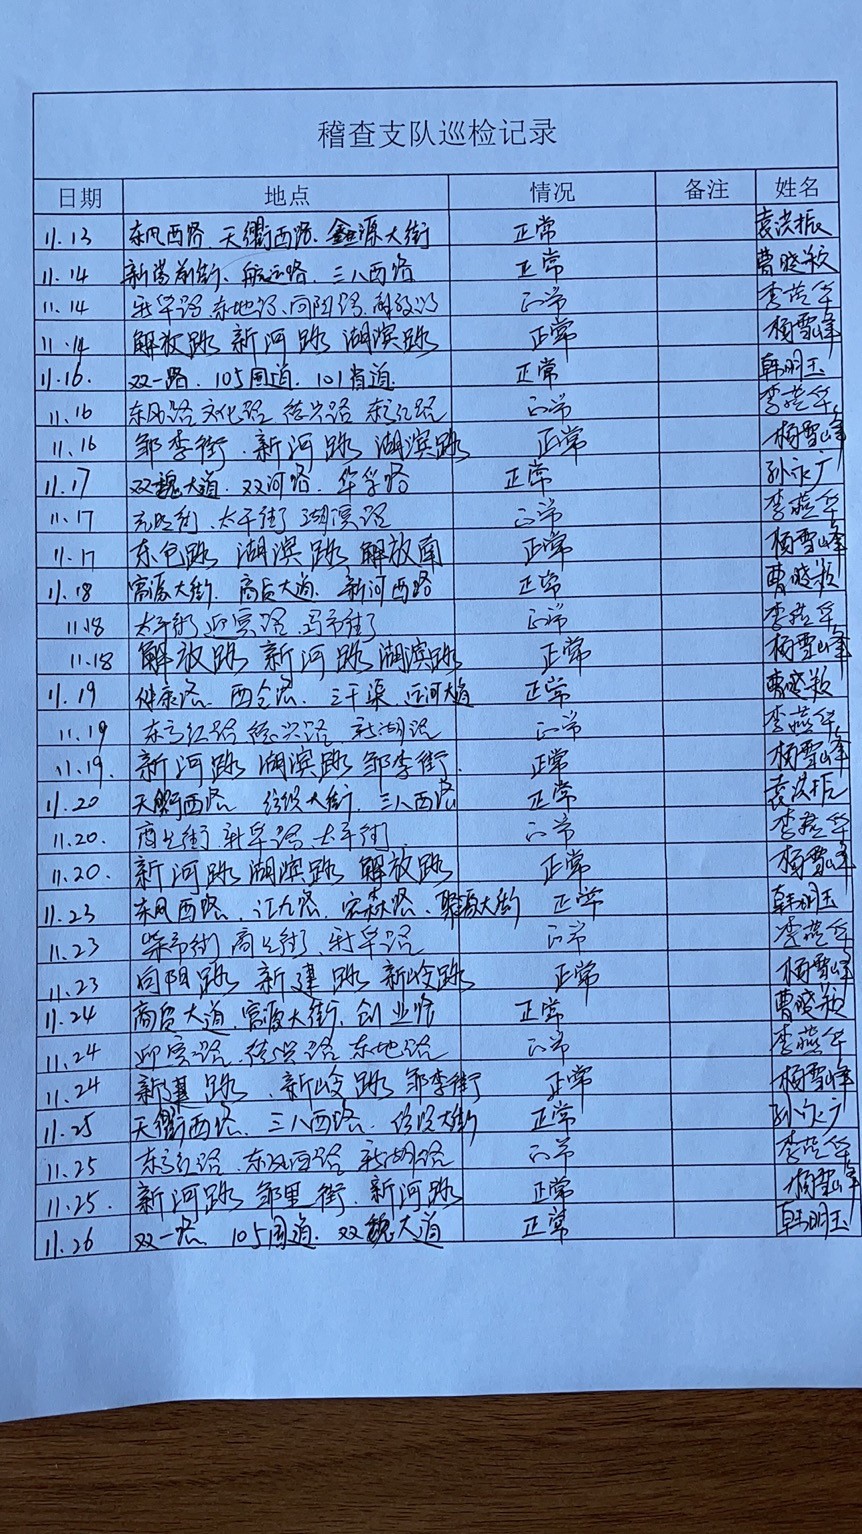 稽查支队巡检记录
日期 地点 情况 备注 姓名
11.13 东风西路 天衢西路、鑫源大街 正常 袁洪振
11.14 街、航运路、三八西路 正常 曹晓颖
11.14 新华路、东地路、向阳路、解放路 正常 李燕华
11.14 解放路 新河路 湖滨路 正常 杨雪峰
11.16. 双一路、105国道、101省道 正常 韩明玉
11.16 东风路 文化路 德兴路 东方红路 正常 李燕华
11.16 邹李街、新河路 湖滨路 正常 杨雪峰
11.17 双魏大道、双河路、华孚路 正常 孙永广
11.17 太平街 湖滨路 正常 李燕华
11.17 东包路 湖滨路 解放南 正常 杨雪峰
11.18 富源大街、商启大道、新河西路 正常 曹晓颖
11.18 太平街 迎宾路 马市街 正常 李燕华
11.18 解放路 新河路 湖滨路 正常 杨雪峰
11.19 健康路、西仓路、三干渠、运河大道 正常 曹晓颖
11.19 东方红路 德兴路 新湖路 正常 李燕华
11.19. 新河路 湖滨路 邹李街 正常 杨雪峰
11.20 天衢西路 大街、三八西路 正常 袁洪振
11.20. 街 新华路 太平街 正常 李燕华
11.20. 新河路 湖滨路 解放路 正常 杨雪峰
11.23 东风西路、江九路、宏森路、聚源大街 正常 韩明玉
11.23 柴市街 街 新华路 正常 李燕华
11.23 向阳路 新建路 新岭路 正常 杨雪峰
11.24 商启大道、富源大街、创业路 正常 曹晓颖
11.24 迎宾路 德兴路 东地路 正常 李燕华
11.24 新建路、新岭路 邹李街 正常 杨雪峰
11.25 天衢西路、三八西路、大街 正常 孙永广
11.25 东方红路、东风西路 新湖路 正常 李燕华
11.25. 新河路 邹里街、新河路 正常 杨雪峰
11.26 双一路、105国道、双魏大道 正常 韩明玉